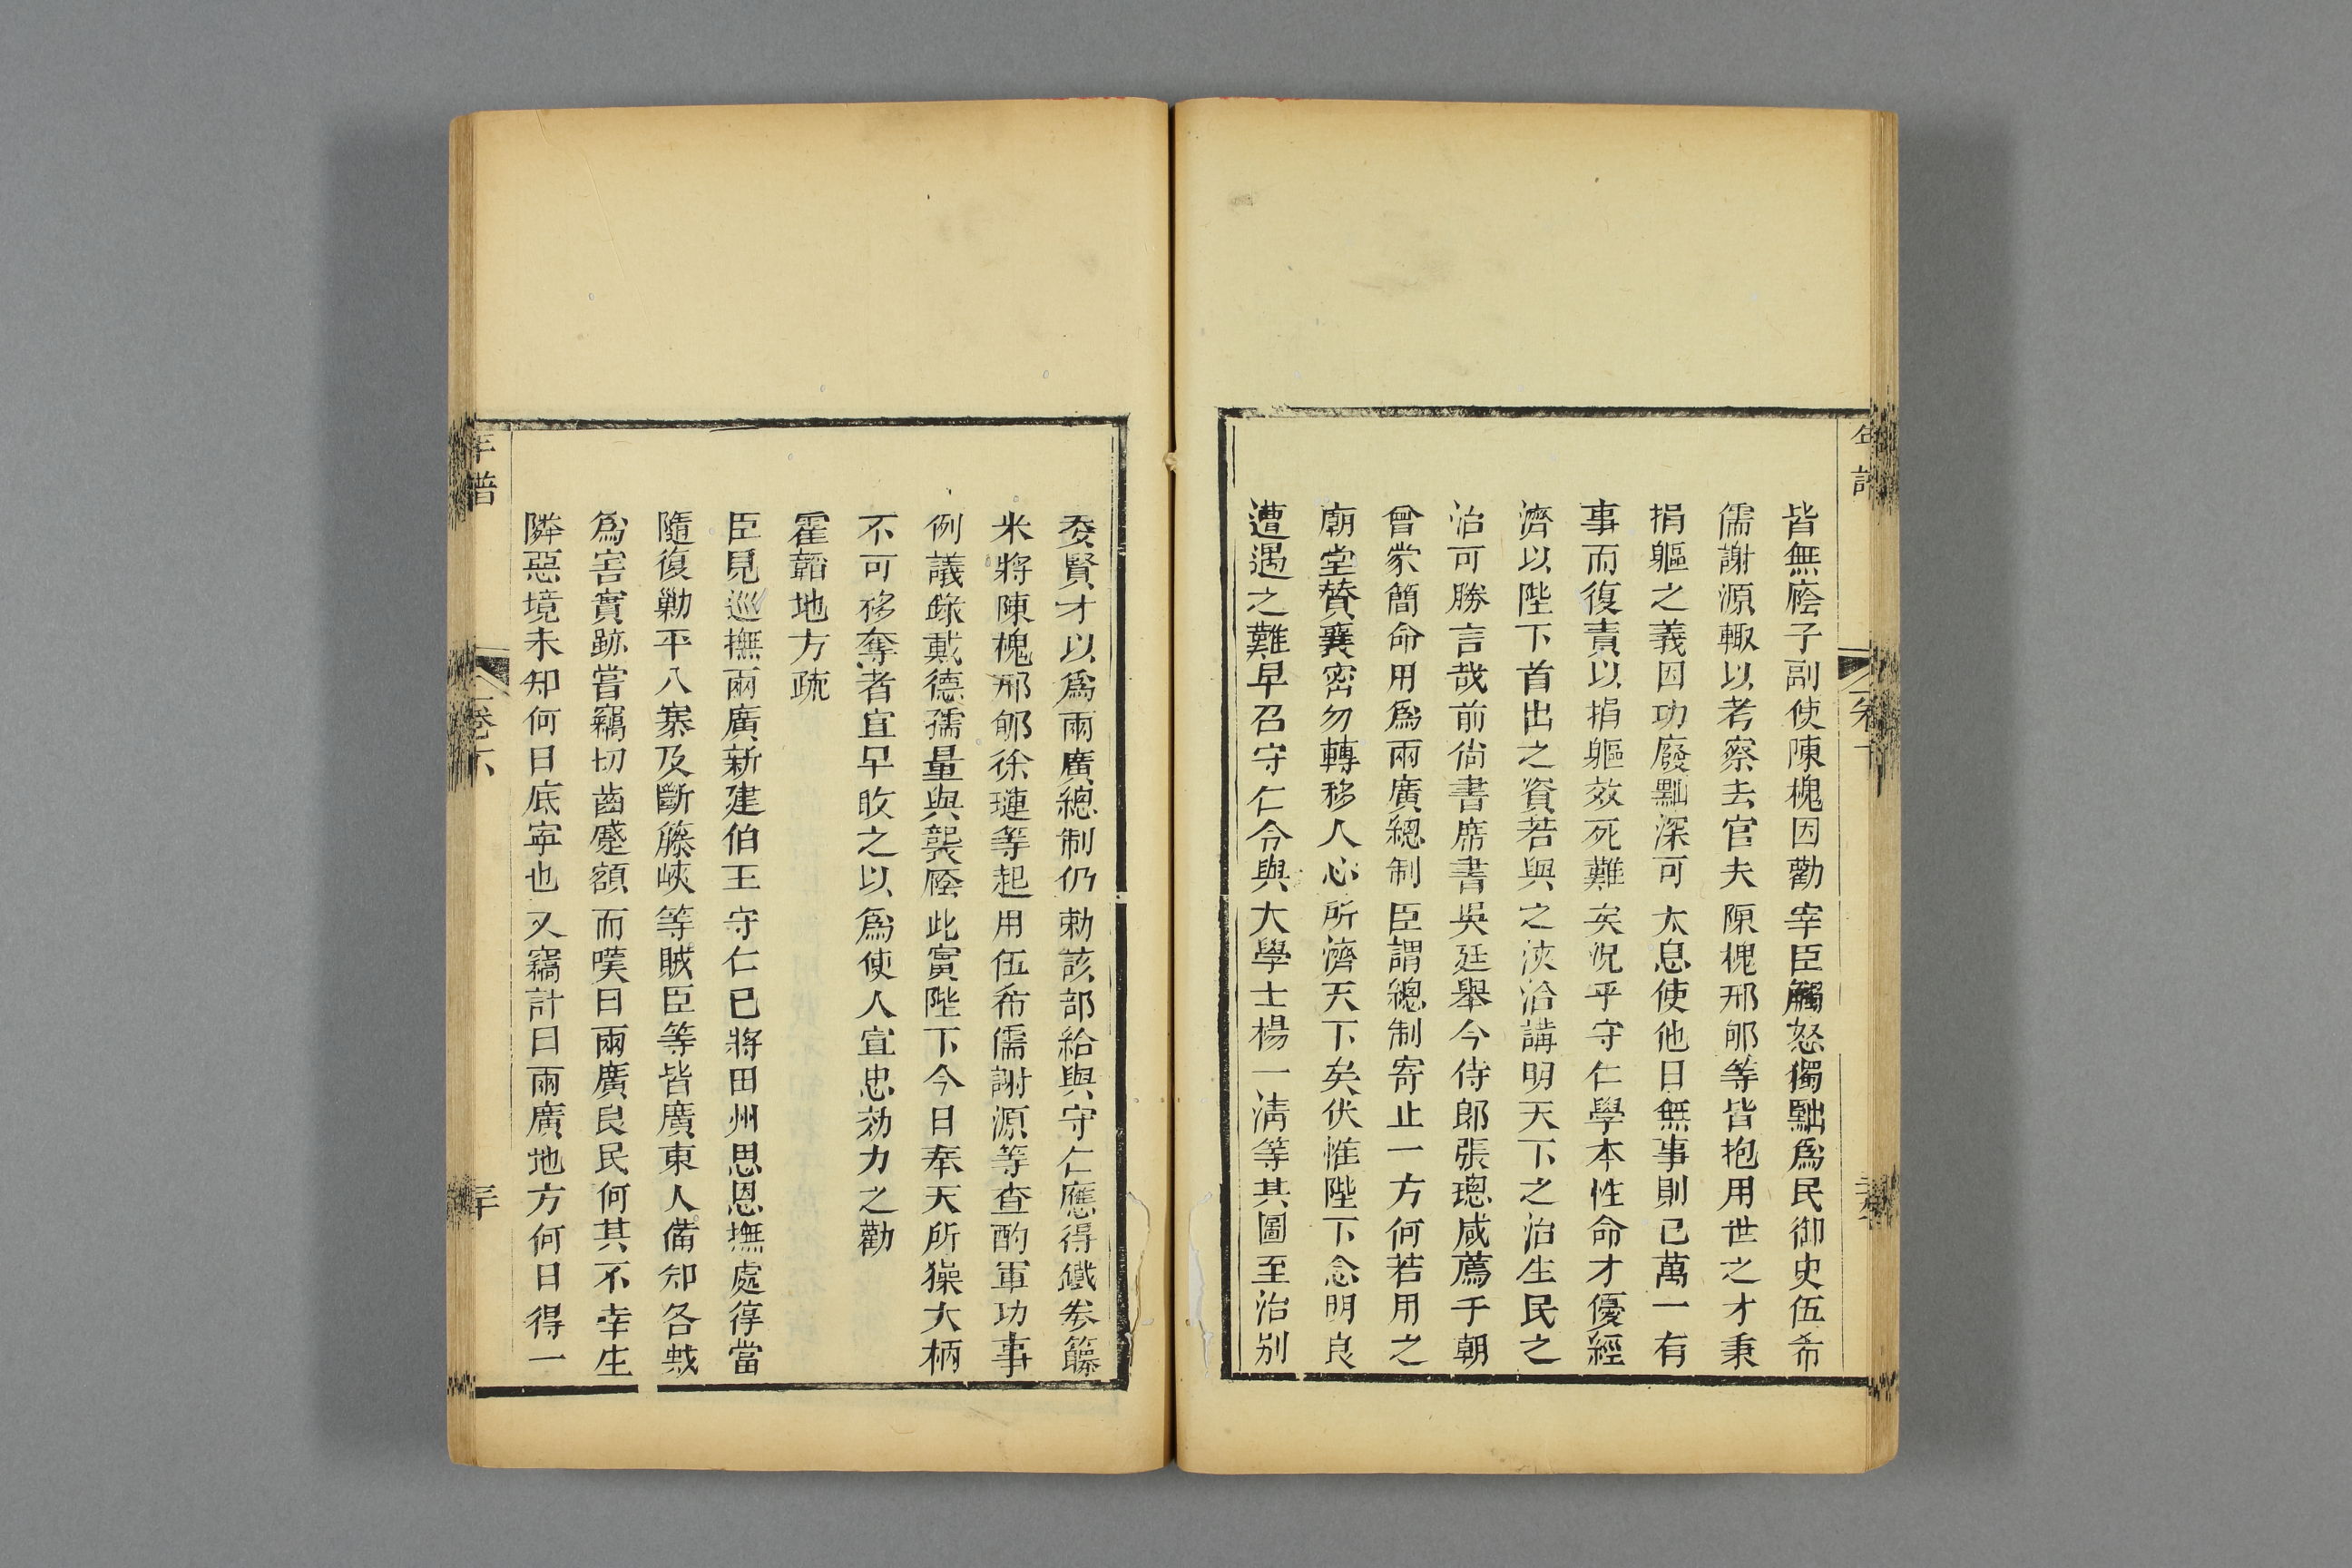 年譜
皆無廕子副使陳槐因勸宰臣觸怒獨黜爲民御史伍希
儒謝源輙以考察去官夫陳槐邢郇等皆抱用世之才秉
捐軀之義因功廢黜深可太息使他日無事則已萬一有
事而復責以捐軀效死難矣況乎守仁學本性命才優經
濟以陛下首出之資若與之浹洽講明天下之治生民之
治可勝言哉前尚書席書吳廷舉今侍郎張璁咸薦于朝
曾蒙簡命用爲兩廣總制臣謂總制寄止一方何若用之
廟堂贊襄密勿轉移人心所濟天下矣伏惟陛下念明良
遭遇之難早召守仁令與大學士楊一淸等其圖至治别
委賢才以爲兩廣總制仍勅該部給與守仁應得鐵券
米將陳槐邢郇徐璉等起用伍希儒謝源等查酌軍功事
例議錄戴德孺量與襲廕此實陛下今日奉天所操大柄
不可移奪者宜早收之以爲使人宣忠効力之勸
霍韜地方疏
臣見巡撫兩廣新建伯王守仁已將田州思恩撫處停當
隨復勦平八寨及斷籐峽等賊臣等皆廣東人備知各賊
爲害實跡嘗竊切齒蹙額而嘆曰兩廣良民何其不幸生
隣惡境未知何日底寜也又竊計曰兩廣地方何日得一
年譜
卷下
三十